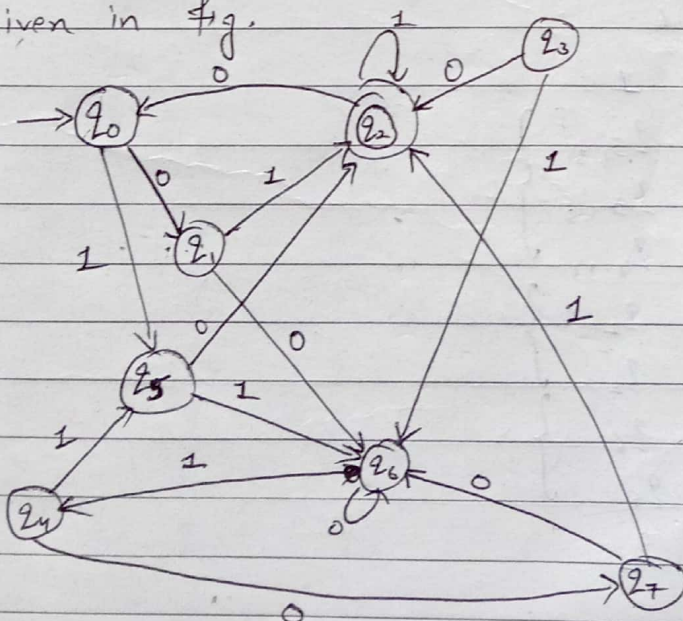 iven in Fig.
1
q3
0
0
q0
q2
1
0
1
q1
1
0
0
1
q5
1
1
1
q6
0
0
q4
q7
0